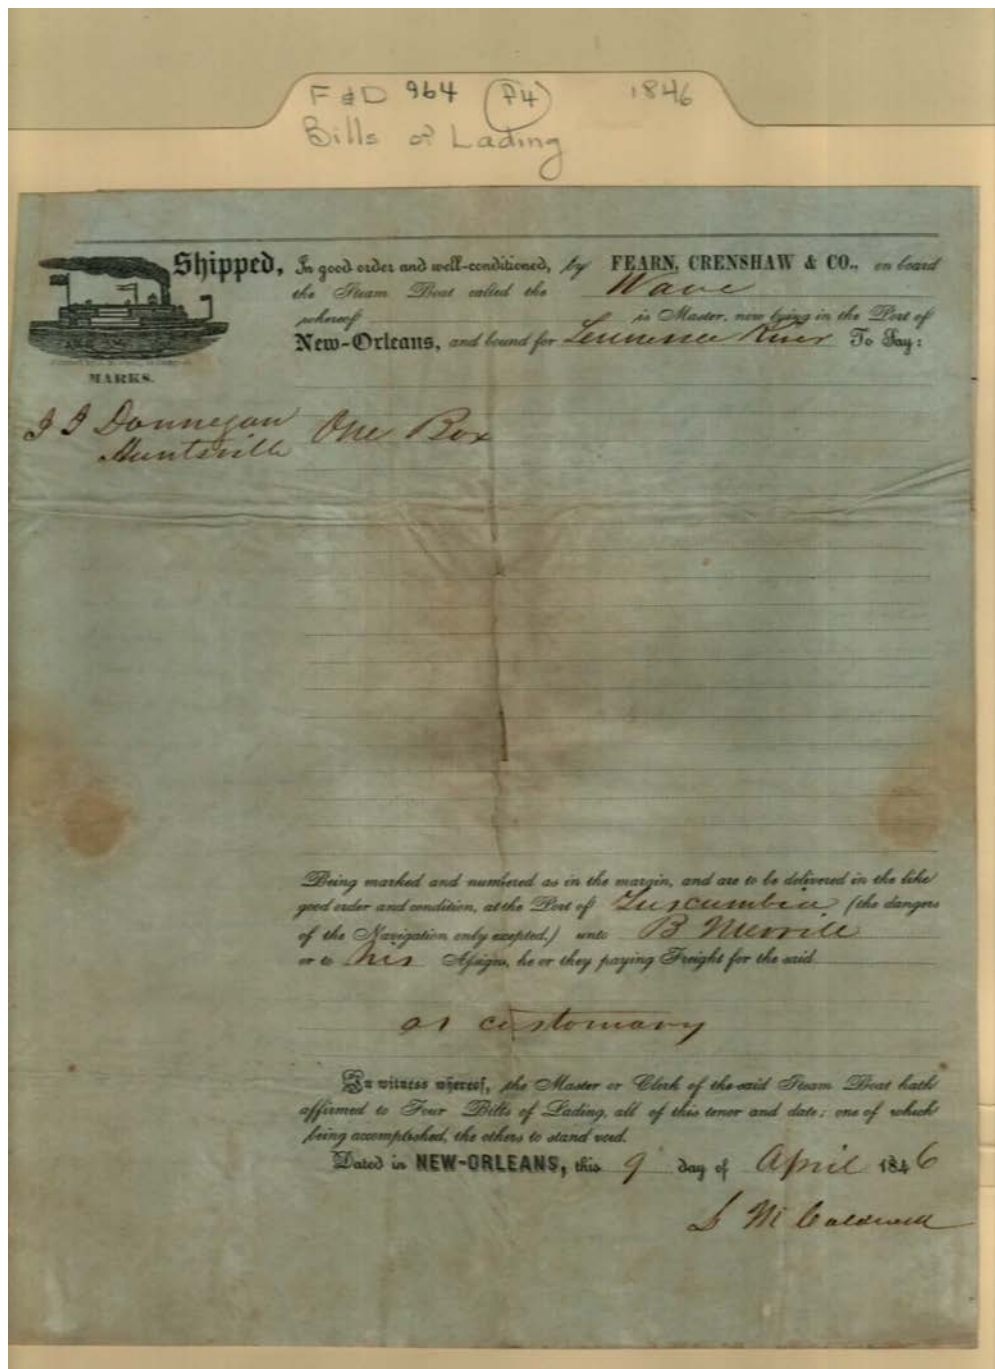 F &D 964 P4 1846
Bills of Lading
Shipped, In good order and well-conditioned, by FEARN, CRENSHAW & CO., on board
the Steam Boat called the Wave
whereof is Master, now lying in the Port of
New-Orleans, and bound for Tennessee River To Say:
MARKS.
J J Donnegan One Box
Huntsville
Being marked and numbered as in the margin, and are to be delivered in the like
good order and condition, at the Port of Tuscumbia (the dangers
of the Navigation only exepted.) unto B Merrill
or to his Assigns, he or they paying Freight for the said
as customary
In witness whereof, the Master or Clerk of the said Steam Boat hath
affirmed to Four Bills of Lading, all of this tenor and date; one of which
being accomplished, the others to stand void.
Dated in NEW-ORLEANS, this 9 day of April 1846
S M Caldwell